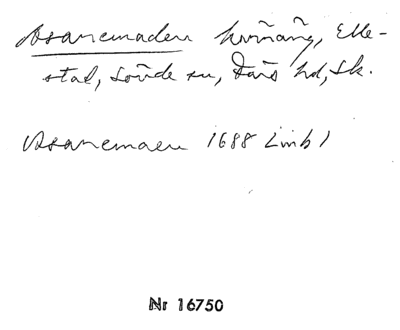 Asanemaden kvrñäng, Elle-
stad, Lövde sn, Färs hd, Sk.
Asanemaen 1688 Limb 1
Nr 16750